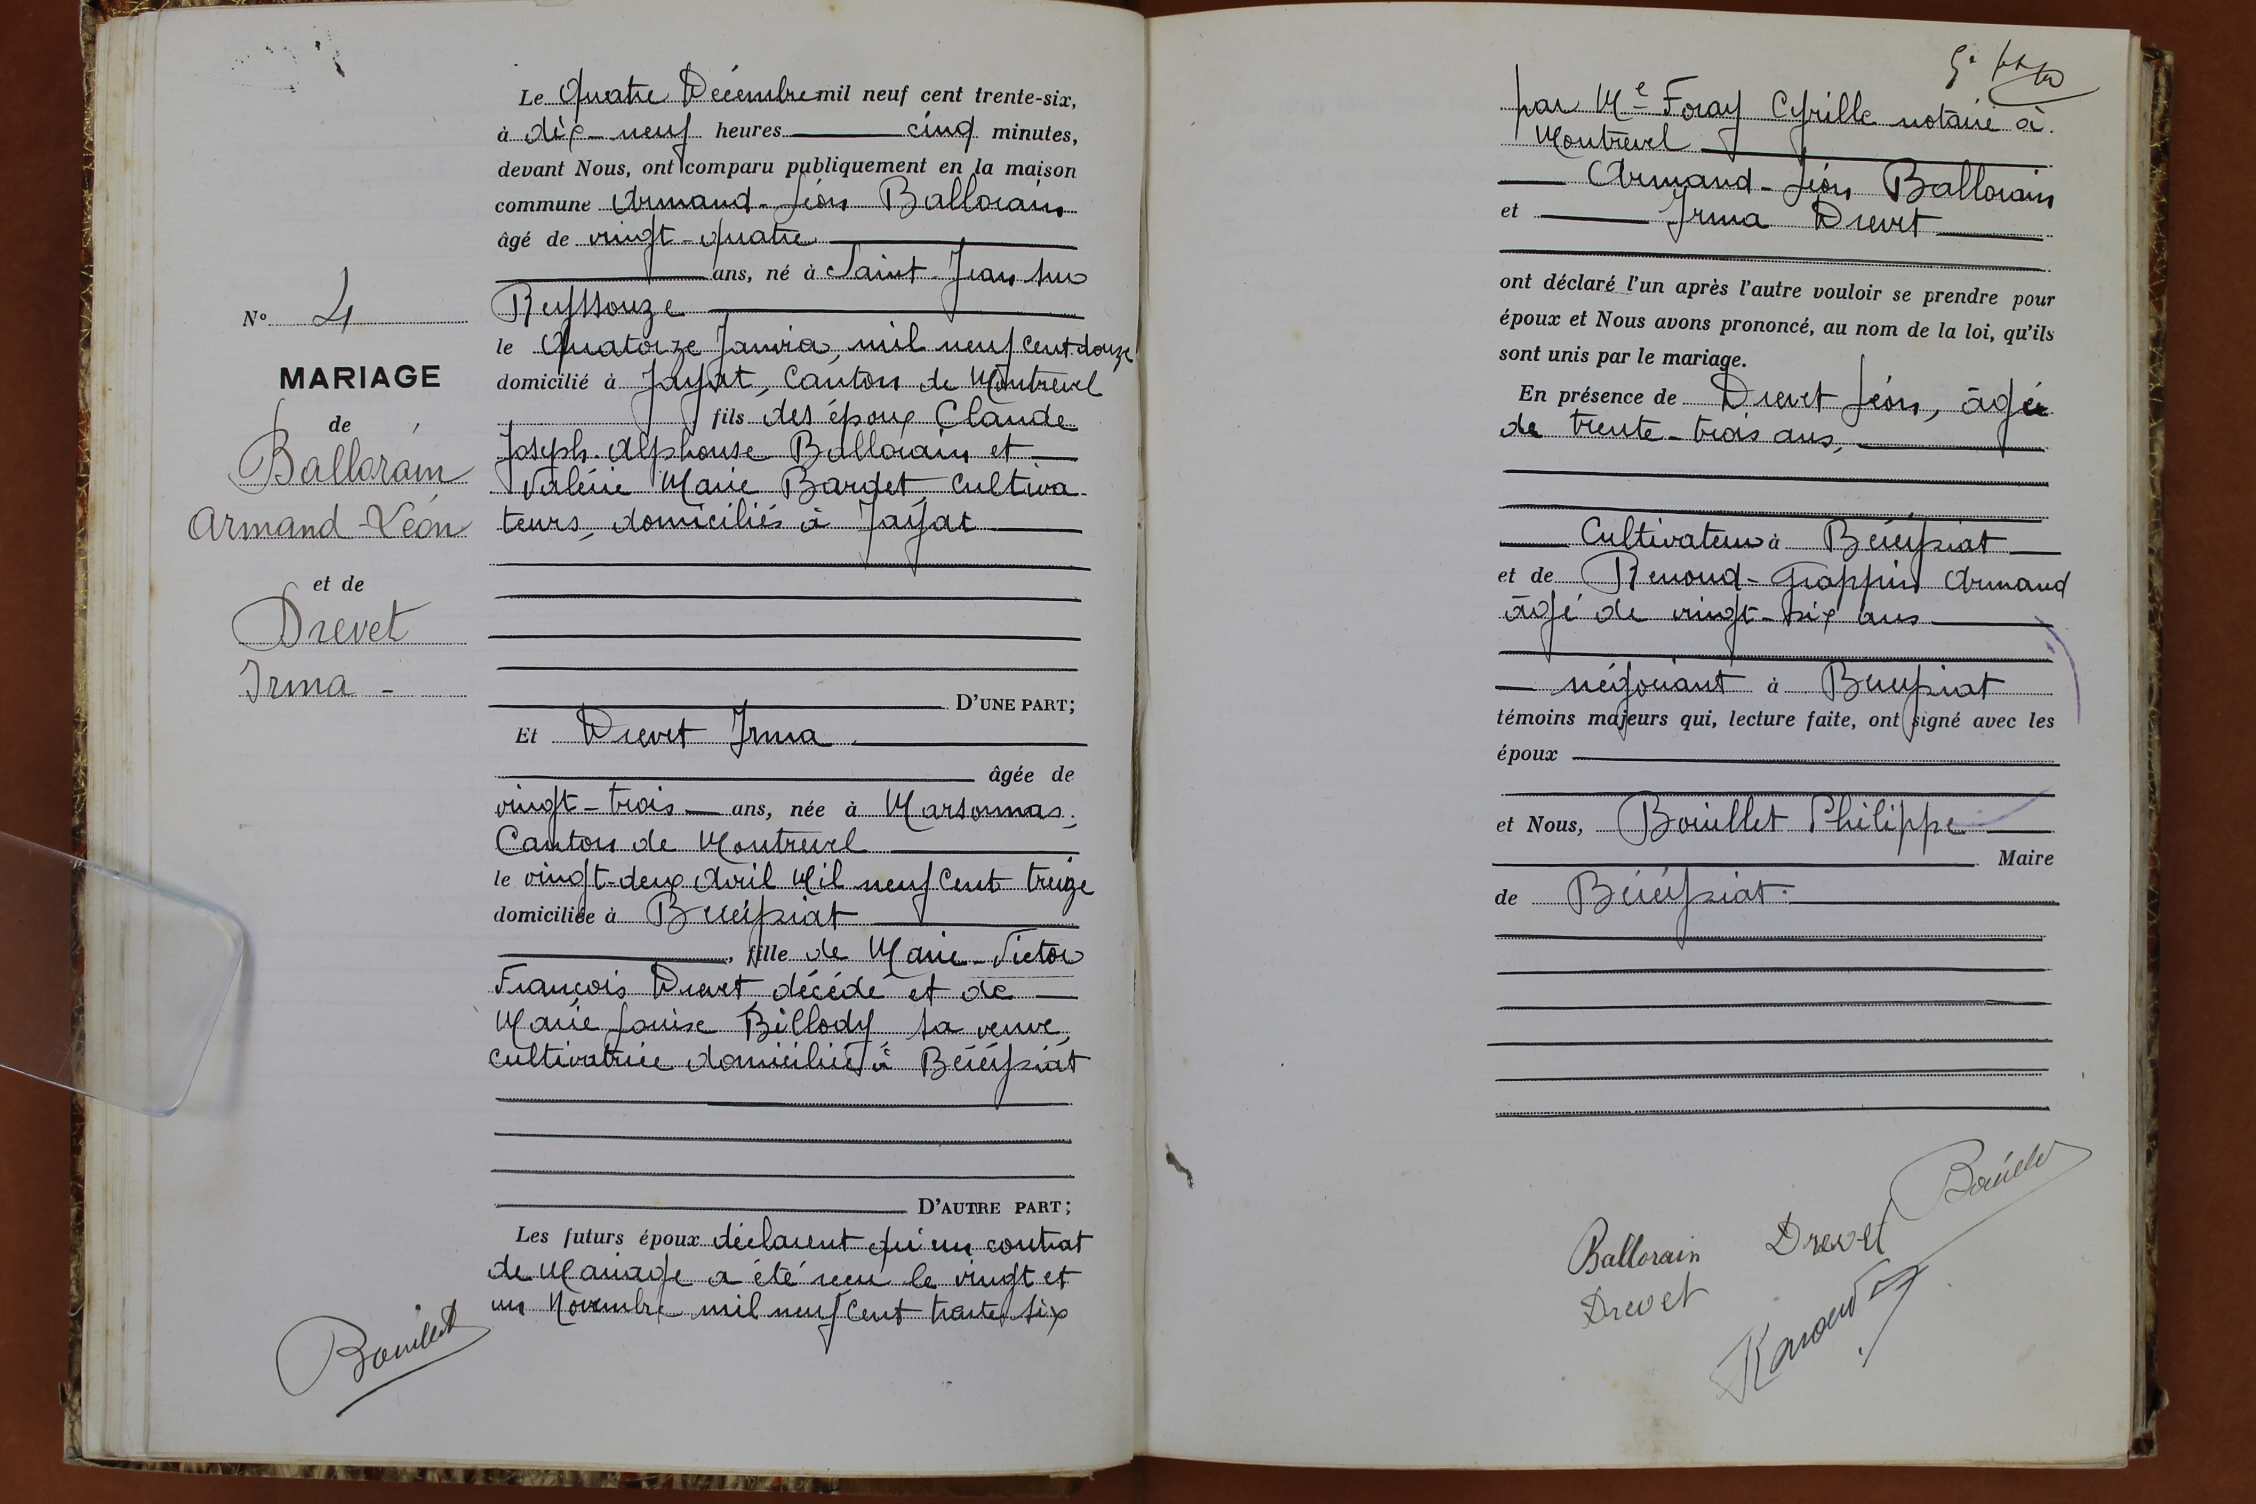 Le Quatre Décembre mil neuf cent trente-six,
à dix-neuf heures cinq minutes,
devant Nous, ont comparu publiquement en la maison
commune Armand-Léon Ballorain
âgé de vingt-quatre
ans, né à Saint-Jean sur
Reyssouze
le Quatorze Janvier, mil neuf cent douze
domicilié à Jayat, Canton de Montrevel
fils des époux Claude
Joseph-Alphonse Ballorain et
Valérie Marie Bardet, cultiva-
teurs, domiciliés à Jayat
D'UNE PART;
Et Drevet Irma
âgée de
vingt-trois ans, née à Marsonnas,
Canton de Montrevel
le vingt-deux Avril Mil neuf Cent treize
domiciliée à Béréyziat
fille de Marie-Victor
François Drevet, décédé et de
Marie Louise Billody, sa veuve,
cultivatrice domiciliée à Béréyziat
D'AUTRE PART;
Les futurs époux déclarent qu'un contrat
de Mariage a été reçu le vingt et
un Novembre mil neuf Cent trente six
N° 4
MARIAGE
de
Ballorain
Armand-Léon
et de
Drevet
Irma -
Bouillet
par Me Foray Cyrille notaire à
Montrevel
Armand-Léon Ballorain
et Irma Drevet
ont déclaré l'un après l'autre vouloir se prendre pour
époux et Nous avons prononcé, au nom de la loi, qu'ils
sont unis par le mariage.
En présence de Drevet Léon, âgé
de trente-trois ans,
Cultivateur à Béréyziat
et de Renoud-Grappin Armand
âgé de vingt-six ans
négociant à Béréyziat
témoins majeurs qui, lecture faite, ont signé avec les
époux
et Nous, Bouillet Philippe
Maire
de Béréyziat.
Bouillet
Ballorain Drevet
Drevet